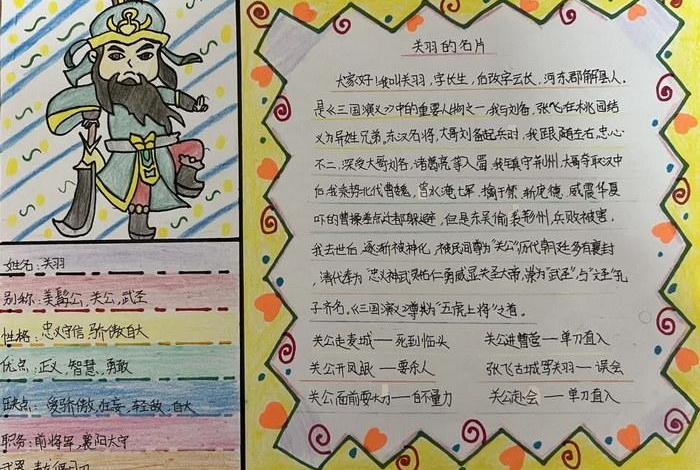 姓名:关羽
别称:美髯公,关公,武圣
性格:忠义守信 骄傲自大
优点:正义,智慧,勇敢
缺点:爱骄傲,狂妄,轻敌,自大
职务:前将军,襄阳太守
关羽的名片
大家好!我叫关羽,字长生,后改字云长,河东郡解县人。
是《三国演义》中的重要人物之一,我与刘备,张飞在桃园结
义为异姓兄弟,东汉名将,大哥刘备起兵时,我跟随左右,忠心
不二,深受大哥刘备,诸葛亮等入蜀,我则镇守荆州,大哥夺取汉中
后我乘势北伐曹魏,曾水淹七军,擒于禁,斩庞德,威震华夏
吓的曹操差点迁都躲避,但是东吴偷袭荆州,兵败被害,
我去世后,逐渐被神化,被民间尊为"关公"历代朝廷多有褒封
,清代奉为"忠义神武灵佑仁勇威显关圣大帝,崇为"武圣"与"文圣"孔
子齐名,《三国演义》尊为"五虎上将"之首。
关公走麦城——死到临头 关公进曹营——单刀直入
关公开凤眼——要杀人 张飞古城骂关羽——误会
关公面前耍大刀——自不量力 关公赴会——单刀直入